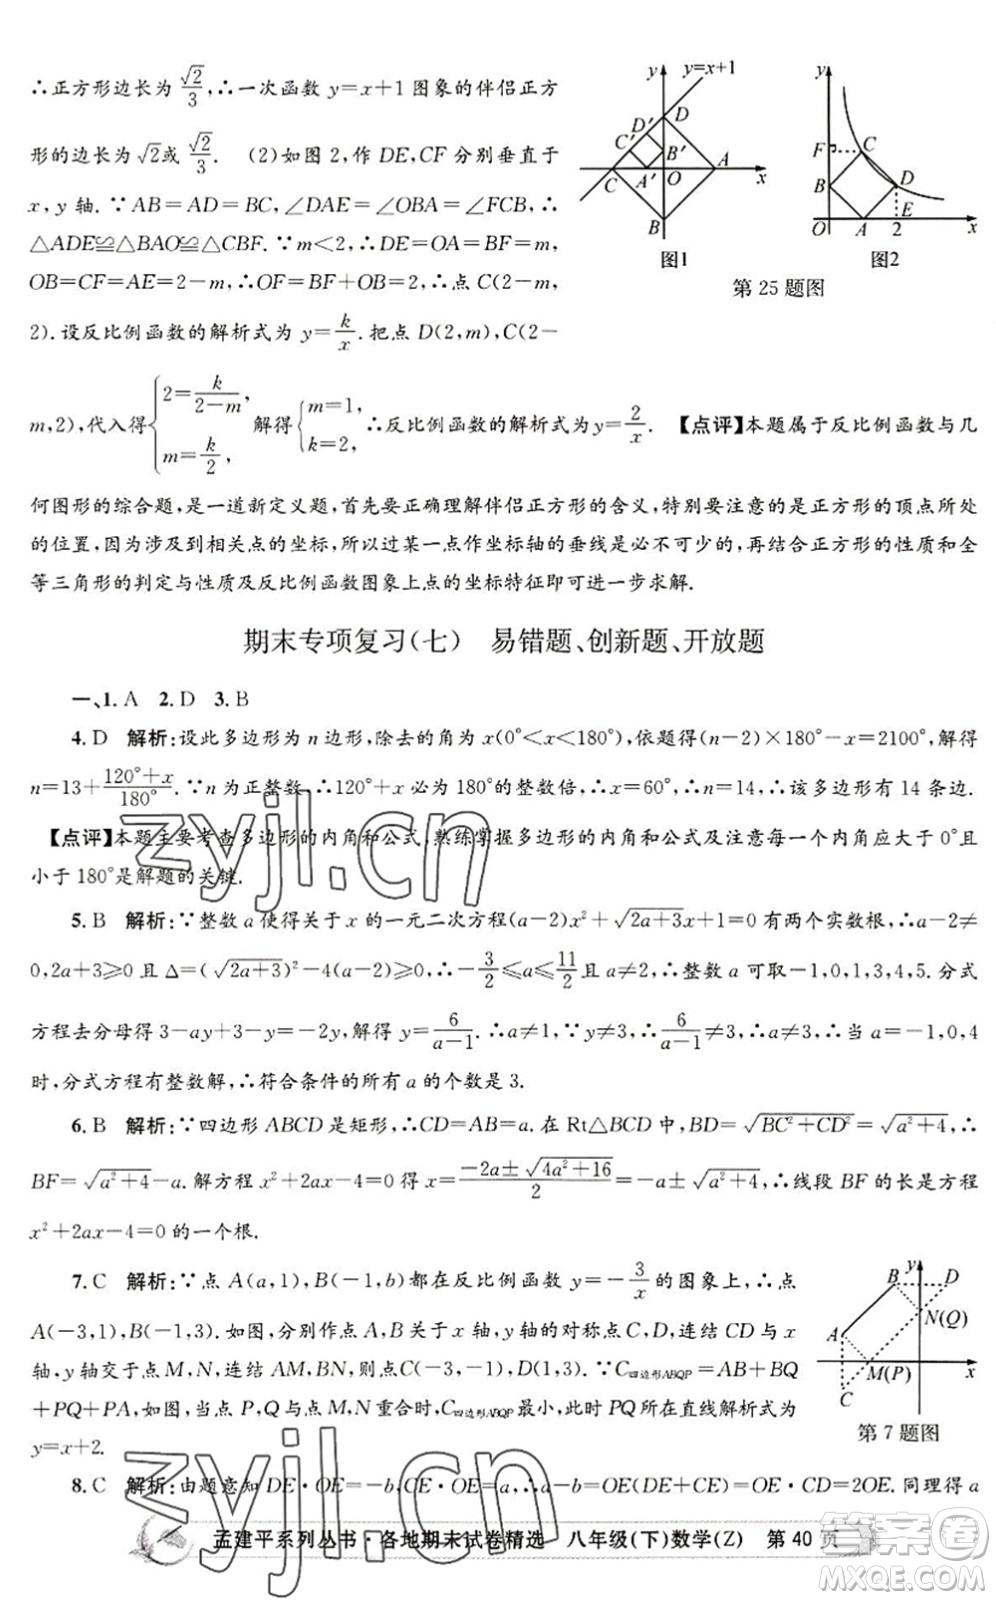 ∴正方形边长为√2/3,∴一次函数 y=x+1 图象的伴侣正方
形的边长为√2或√2/3. (2)如图 2,作 DE,CF 分别垂直于
x,y 轴.∵AB=AD=BC,∠DAE=∠OBA=∠FCB,∴
△ADE≌△BAO≌△CBF.∵m<2,∴DE=OA=BF=m,
OB=CF=AE=2-m,∴OF=OB+BF=2,∴点 C(2-m,
2).设反比例函数的解析式为 y=k/x.把点 D(2,m),C(2-
m,2),代入得{2=k/(2-m), m=k/2, 解得{m=1, k=2, ∴反比例函数的解析式为y=2/x. 【点评】本题属于反比例函数与几
何图形的综合题,是一道新定义题,首先要正确理解伴侣正方形的含义,特别要注意的是正方形的顶点所处
的位置,因为涉及到相关点的坐标,所以过某一点作坐标轴的垂线是必不可少的,再结合正方形的性质和全
等三角形的判定与性质及反比例函数图象上点的坐标特征即可进一步求解.
y y=x+1
D′ D
C′ B′ A
C A′ O x
B
图1
y
F C
B D
E
O A 2 x
图2
第 25 题图
期末专项复习(七) 易错题、创新题、开放题
一、1. A 2. D 3. B
4. D 解析:设此多边形为 n 边形,除去的角为 x(0°<x<180°),依题得(n-2)×180°-x=2100°,解得
n=13+(120°+x)/180°.∵n 为正整数,∴120°+x 必为 180°的整数倍,∴x=60°,∴n=14,∴该多边形有 14 条边.
【点评】本题主要考查多边形的内角和公式,熟练掌握多边形的内角和公式及注意每一个内角应大于 0°且
小于 180°是解题的关键.
5. B 解析:∵整数 a 使得关于 x 的一元二次方程(a-2)x²+√(2a+3)x+1=0 有两个实数根,∴a-2≠
0,2a+3≥0 且 Δ=(√(2a+3))²-4(a-2)≥0,∴-3/2≤a≤11/2且 a≠2,∴整数 a 可取-1,0,1,3,4,5. 分式
方程去分母得 3-ay+3-y=-2y,解得 y=6/(a-1).∴a≠1,∵y≠3,∴6/(a-1)≠3,∴a≠3,∴当 a=-1,0,4
时,分式方程有整数解,∴符合条件的所有 a 的个数是 3.
6. B 解析:∵四边形 ABCD 是矩形,∴CD=AB=a. 在 Rt△BCD 中,BD=√(BC²+CD²)=√(a²+4),∴
BF=√(a²+4)-a. 解方程 x²+2ax-4=0 得 x=(-2a±√(4a²+16))/2=-a±√(a²+4),∴线段 BF 的长是方程
x²+2ax-4=0 的一个根.
7. C 解析:∵点 A(a,1),B(-1,b)都在反比例函数 y=-3/x 的图象上,∴点
A(-3,1),B(-1,3). 如图,分别作点 A,B 关于 x 轴,y 轴的对称点 C,D,连结 CD 与 x
轴,y 轴交于点 M,N,连结 AM,BN,则点 C(-3,-1),D(1,3).∵C四边形ABQP=AB+BQ
+PQ+PA,∴如图,当点 P,Q 与点 M,N 重合时,C四边形ABQP最小,此时 PQ 所在直线解析式为
y=x+2.
y
B D
N(Q)
A
M(P) x
C
第 7 题图
8. C 解析:由题意知 DE·OE=-b,CE·OE=-a,∴a-b=OE(DE+CE)=OE·CD=2OE. 同理得 a
孟建平系列丛书·各地期末试卷精选 八年级(下)数学(Z) 第 40 页
zyjl.cn
zyjl.cn
答案圈
MXQE.COM